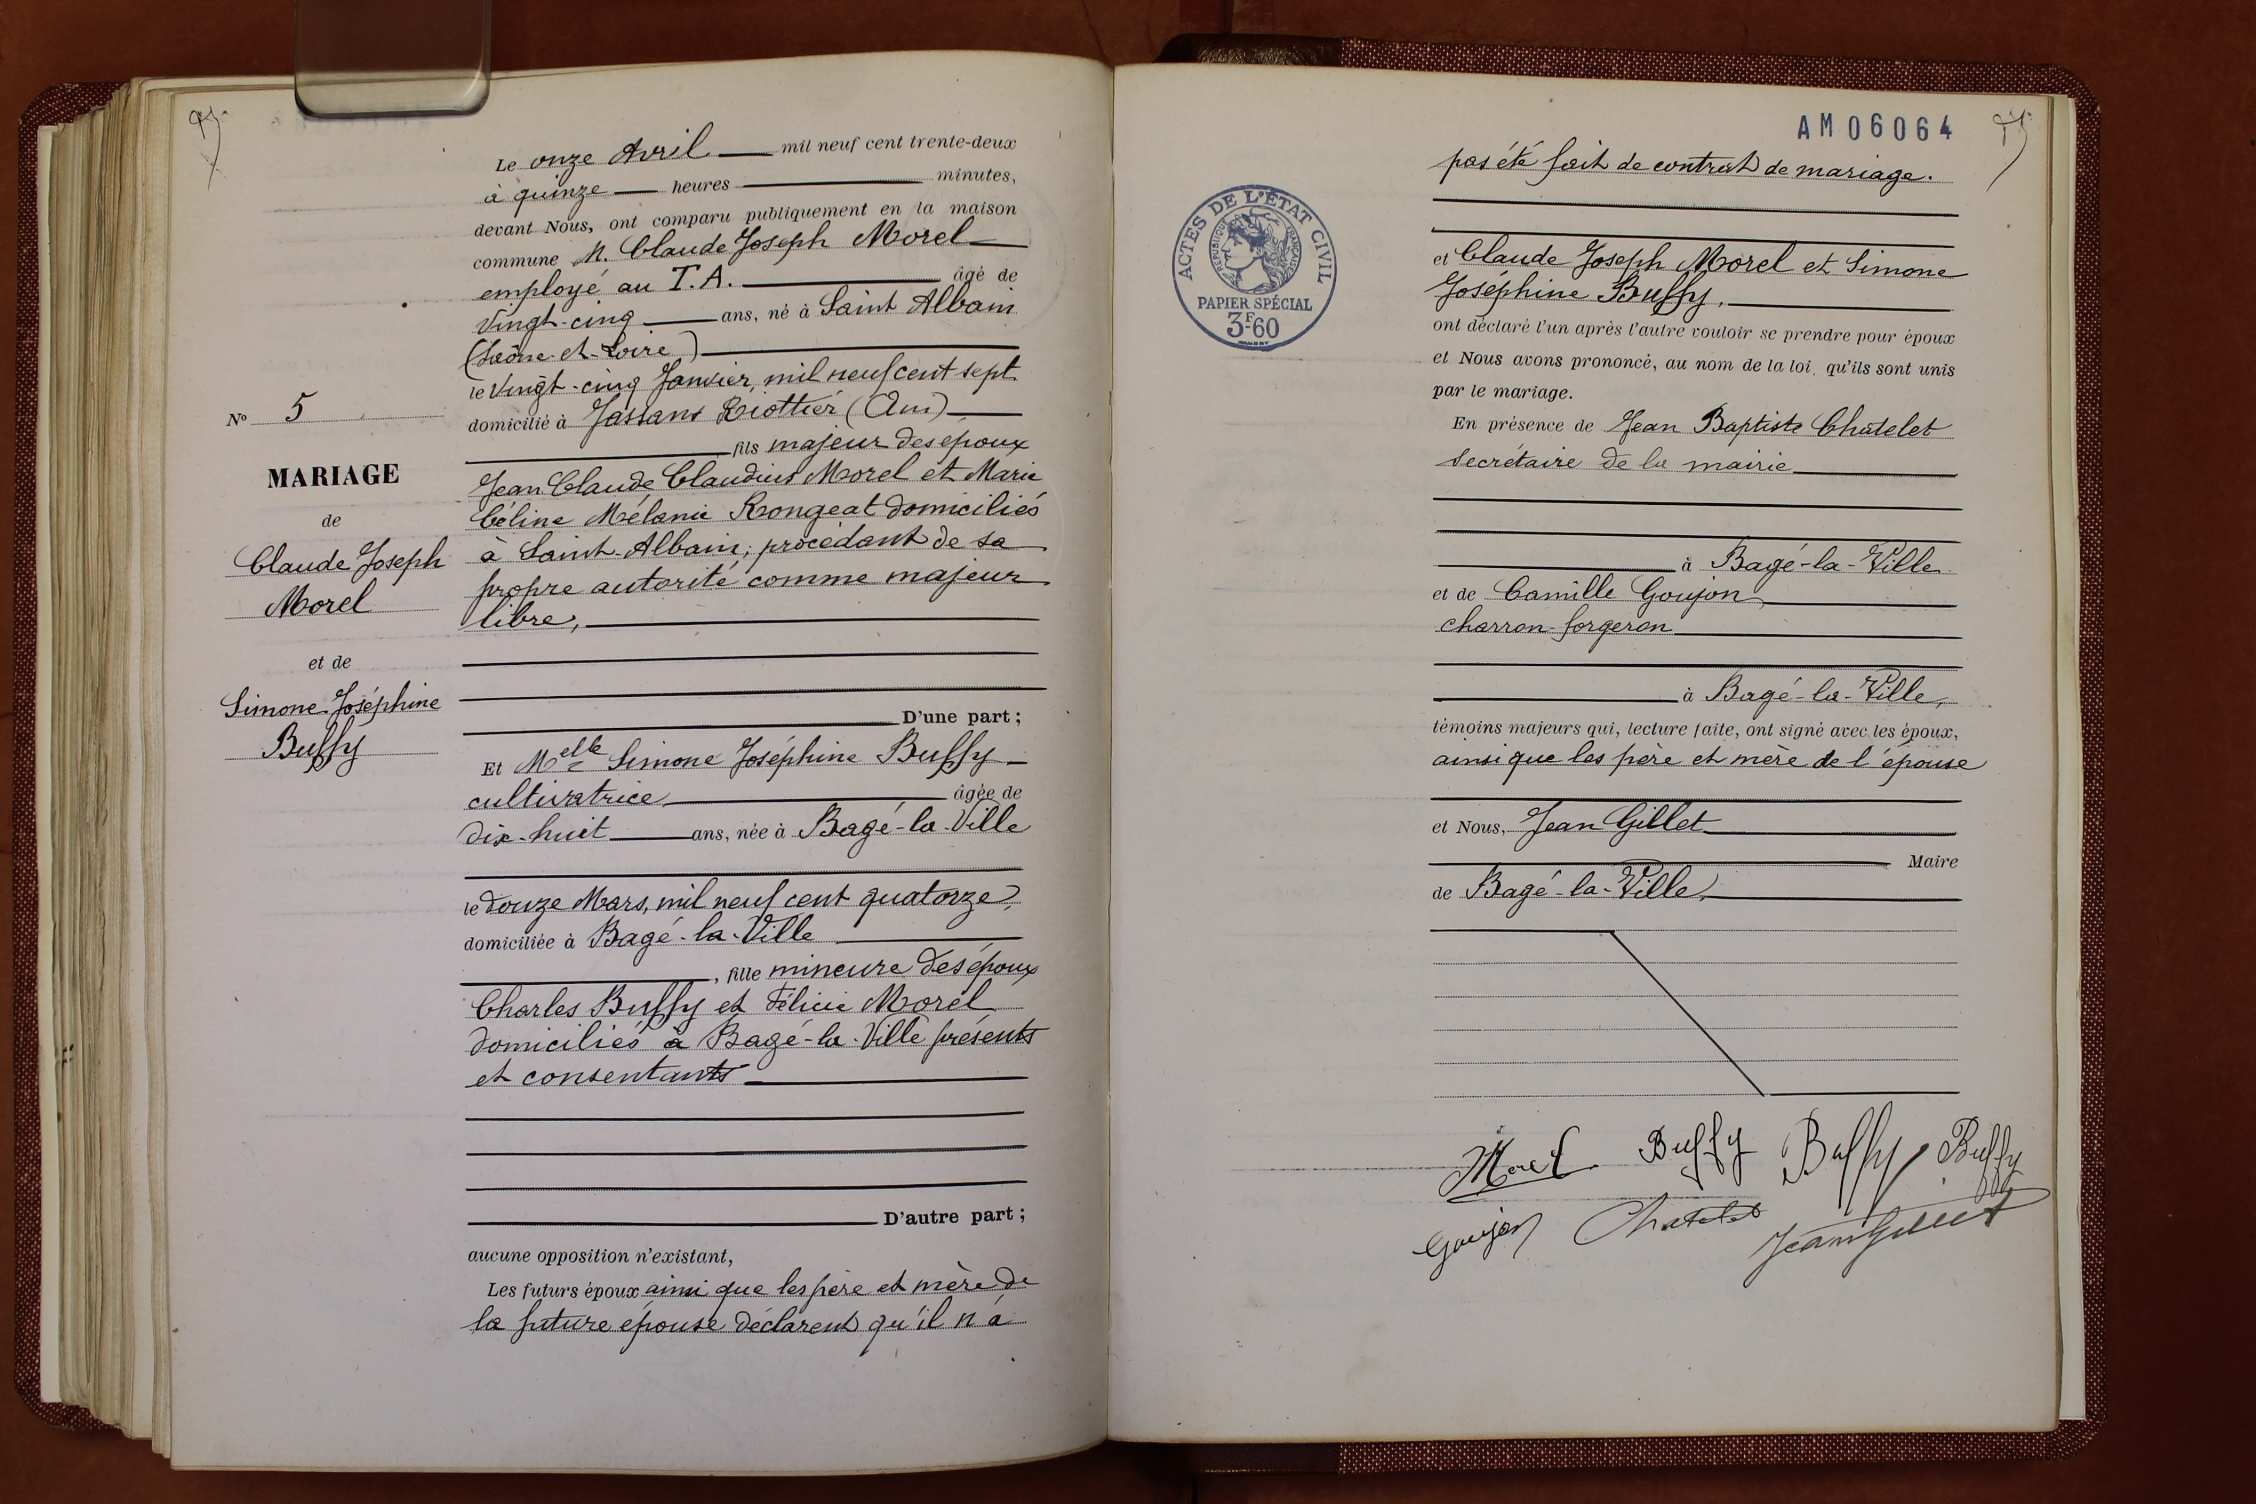 Le onze Avril mil neuf cent trente-deux
à quinze heures minutes,
devant Nous, ont comparu publiquement en la maison
commune M. Claude Joseph Morel
employé au T.A. âgé de
vingt-cinq ans, né à Saint Albain
(Saône-et-Loire)
le vingt-cinq Janvier, mil neuf cent sept
domicilié à Jassans Riottier (Ain)
fils majeur des époux
Jean Claude Claudius Morel et Marie
Céline Mélanie Rongeat domiciliés
à Saint-Albain, procédant de sa
propre autorité comme majeur
libre,
D'une part ;
Nº 5
MARIAGE
de
Claude Joseph
Morel
et de
Simone Joséphine
Buffy
Et Melle Simone Joséphine Buffy
cultivatrice âgée de
dix-huit ans, née à Bagé-la-Ville
le douze Mars, mil neuf cent quatorze,
domiciliée à Bagé-la-Ville
, fille mineure des époux
Charles Buffy et Félicie Morel
domiciliés à Bagé-la-Ville présents
et consentants
D'autre part ;
aucune opposition n'existant,
Les futurs époux ainsi que les père et mère de
la future épouse déclarent qu'il n'a
AM06064
pas été fait de contrat de mariage.
ACTES DE L'ÉTAT CIVIL
RÉPUBLIQUE FRANÇAISE
PAPIER SPÉCIAL
3F60
et Claude Joseph Morel et Simone
Joséphine Buffy,
ont déclaré l'un après l'autre vouloir se prendre pour époux
et Nous avons prononcé, au nom de la loi, qu'ils sont unis
par le mariage.
En présence de Jean Baptiste Chatelet
secrétaire de la mairie
à Bagé-la-Ville
et de Camille Goujon
charron-forgeron
à Bagé-la-Ville,
témoins majeurs qui, lecture faite, ont signé avec les époux,
ainsi que les père et mère de l'épouse
et Nous, Jean Gillet
Maire
de Bagé-la-Ville,
Morel Buffy Buffy Buffy
Goujon Chatelet Jean Gillet